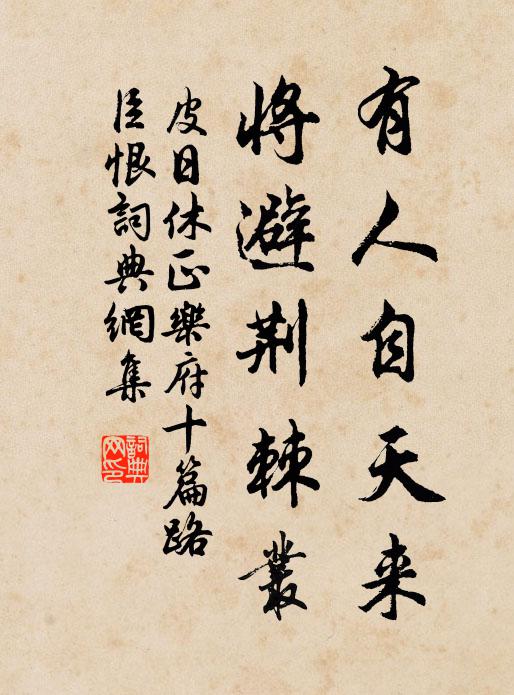 有人自天来
将避荆棘丛
皮日休正樂府十篇路
臣恨詞典網集
詞典
网印